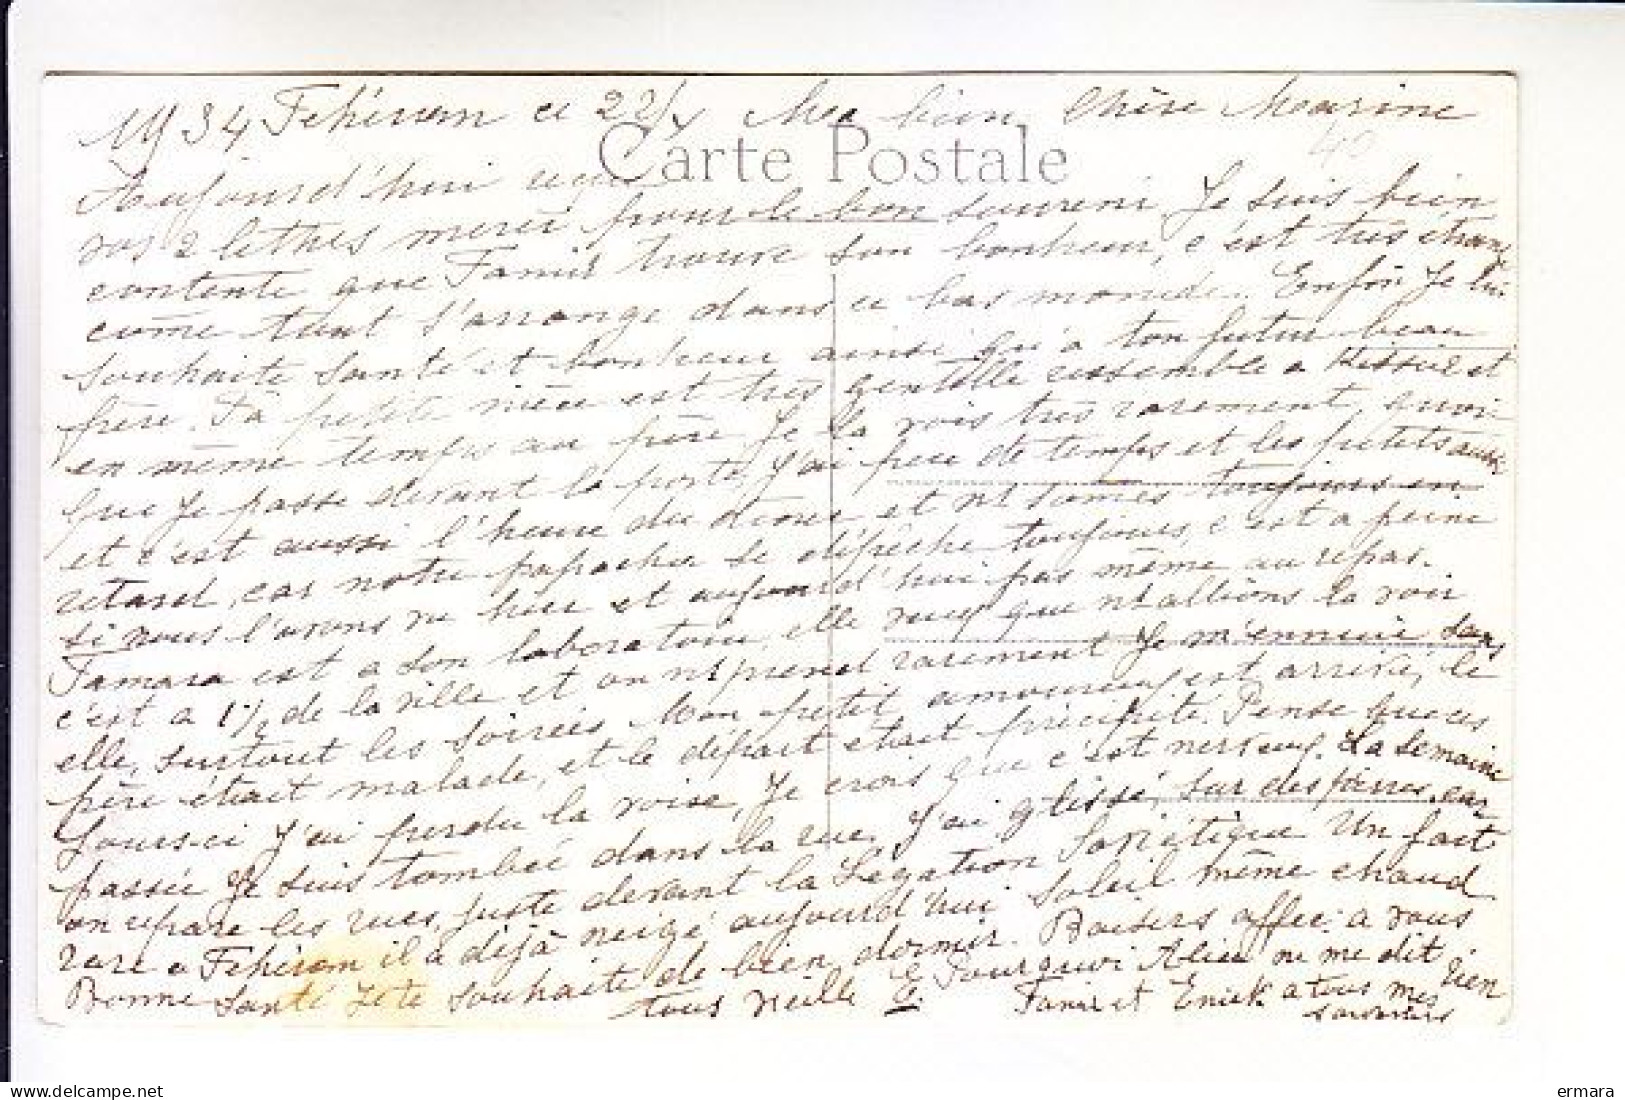 1934 Téhéran ce 22/X Ma bien Chère Maxime
Carte Postale
Aujourd'hui reçu
vos 2 lettres merci pour le bon souvenir. Je suis bien
contente que Tamir trouve son bonheur, c'est très étrang
come tout s'arrange dans ce bas monde. Enfin Je lui
souhaite santé et bonheur ainsi qu'à ton futur beau
frère. Ta petite nièce est très gentille ressemble a et
en même temps au père. Je la vois très rarement, quoi
que Je passe devant la porte, J'ai peu de temps et les petits aussi
et c'est aussi l'heure du diner et ns somes toujours en
retard, car notre papacha se dépêche toujours, c'est a peine
si nous l'avons vu hier et aujourd'hui pas même au repas.
Tamara est a son laboratoire, elle veux que ns allions la voir
c'est a 1½ de la ville et on ns prend rarement Je m'ennuie sans
elle, surtout les soirées. Mon petit amoureux est arrivé, le
père était malade, et le départ était précipité. Pense que ces
Jours-ci J'ai perdu la voise, Je crois que c'est nerveux. La semaine
passée Je suis tombée dans la rue, J'ai glissé, sur des pierres, car
on repare les rues, juste devant la Légation Soviétique Un fait
rare a Téhéran il a déjà neigé, aujourd'hui soleil même chaud
Bonne santé Je te souhaite de bien dormir. Baisers affec. a vous
tous Vieille E. Pourquoi ne me dit rien
Tamir et a tous mes
souvenirs
ermara